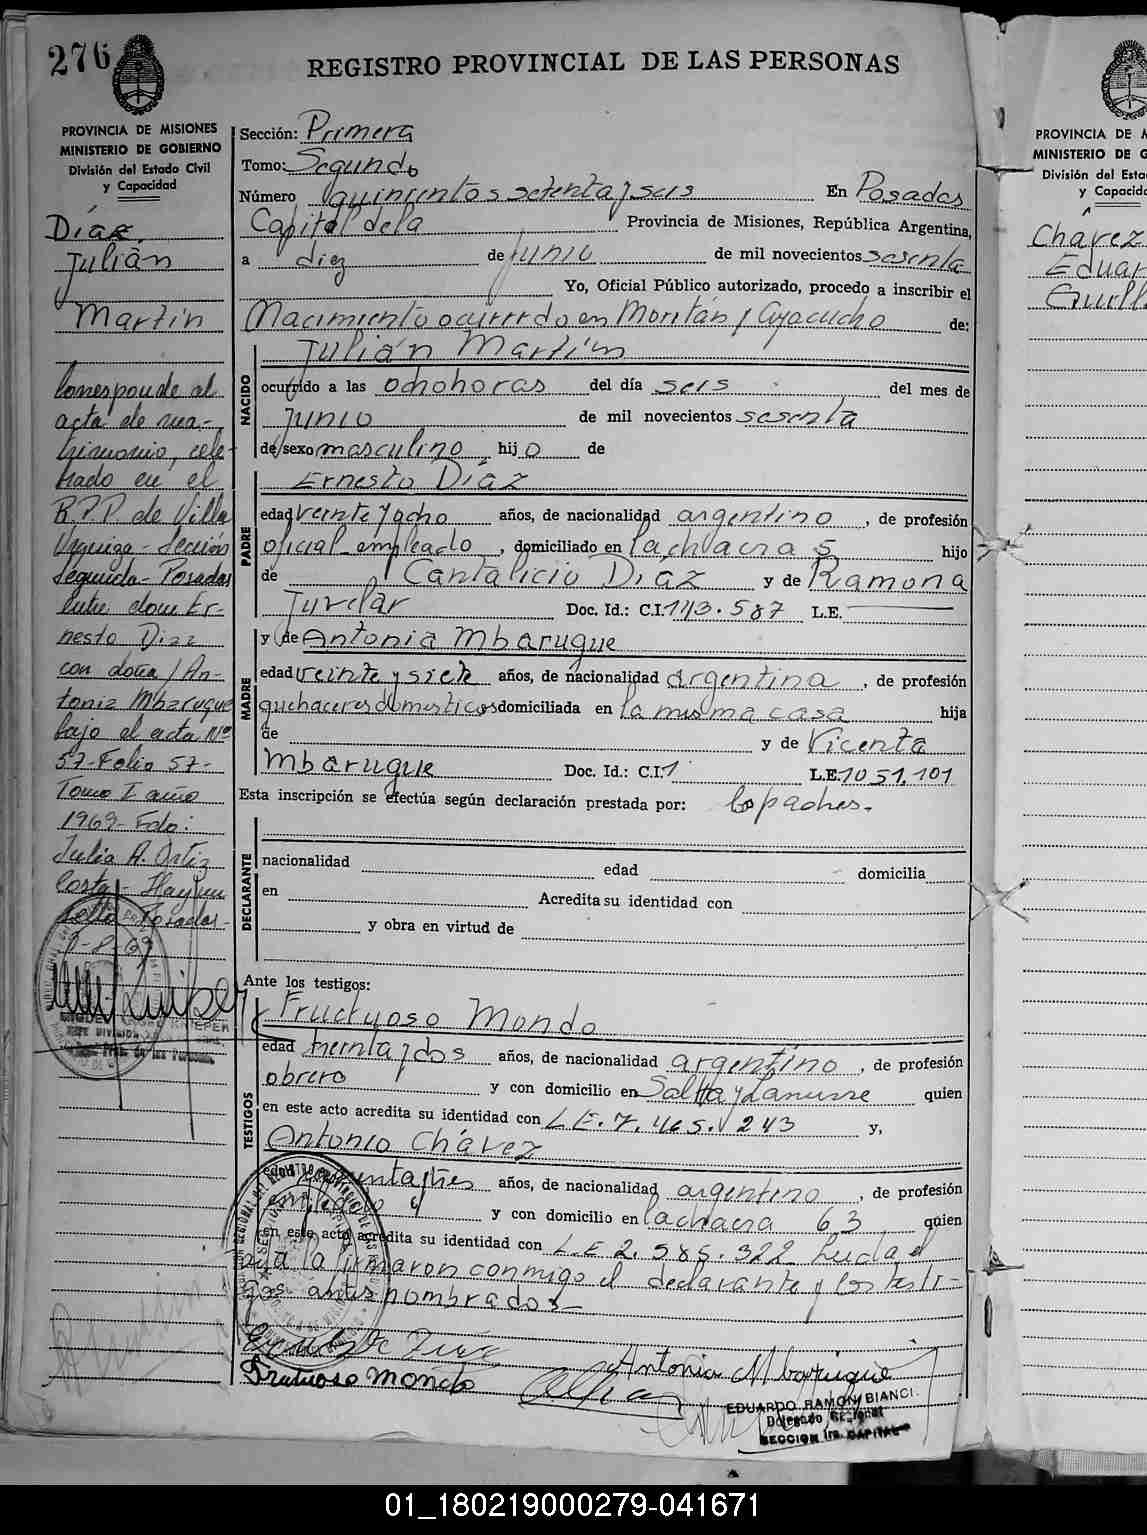 276
REGISTRO PROVINCIAL DE LAS PERSONAS
PROVINCIA DE MISIONES
MINISTERIO DE GOBIERNO
División del Estado Civil
y Capacidad
Díaz,
Julián
Martín
Corresponde al
acta de ma-
trimonio, cele-
brado en el
R.P.P. de Villa
Urquiza - Sección
Segunda - Posadas
Entre don Er-
nesto Diaz
con doña An-
tonia Mbarugue
bajo el acta Nº
57 - Folio 57 -
Tomo I año
1969 - Fdo:
Julia A. Ortiz
Posadas -
8-69
Sección: Primera
Tomo: Segundo
Número quinientos setenta y seis En Posadas
Capital de la Provincia de Misiones, República Argentina,
a diez de Junio de mil novecientos sesenta
Yo, Oficial Público autorizado, procedo a inscribir el
Nacimiento ocurrido en y Ayacucho de:
Julián Martín
NACIDO
ocurrido a las ocho horas del día seis del mes de
Junio de mil novecientos sesenta
de sexo masculino hijo de
Ernesto Díaz
PADRE
edad veinte y ocho años, de nacionalidad argentino, de profesión
oficial empleado, domiciliado en la chacra 5 hijo
de Cantalicio Díaz y de Ramona
Doc. Id.: C.I. 143.587 L.E.
y de Antonia Mbarugue
MADRE
edad veinte y siete años, de nacionalidad argentina, de profesión
quehaceres domesticos domiciliada en la misma casa hija
de y de Vicenta
Mbarugue Doc. Id.: C.I. L.E. 1051.101
Esta inscripción se efectúa según declaración prestada por: los padres.
DECLARANTE
nacionalidad edad domicilia
en Acredita su identidad con
y obra en virtud de
Ante los testigos:
Fructuoso Mondo
TESTIGOS
edad treinta y dos años, de nacionalidad argentino, de profesión
obrero y con domicilio en Salta y Lanusse quien
en este acto acredita su identidad con L.E. 7.465.243 y,
Antonio Chávez
años, de nacionalidad argentino, de profesión
y con domicilio en la chacra 63 quien
en este acto acredita su identidad con L.E 2.585.322 Leida el
acta la firmaron conmigo el declarante y los testi-
gos antes nombrados_
Antonia Mbarugue
Frutuoso Mondo
EDUARDO RAMON BIANCI
Delegado Regional
SECCION 1ra. CAPITAL
PROVINCIA DE M
MINISTERIO DE G
División del Esta
y Capacid
Chávez
Eduar
Guill
01_180219000279-041671